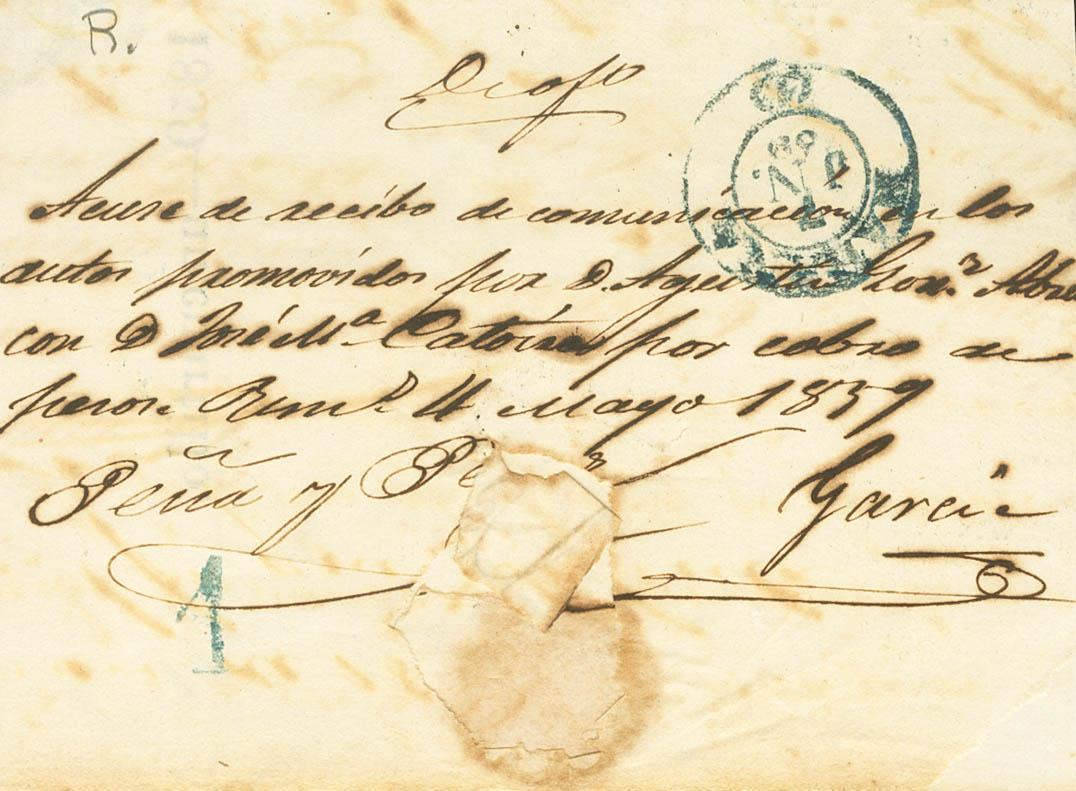 R.
De ofo
Acuse de recibo de comunicación en los
autos promovidos por D. Agustin Gonz Abreu
con D José Ma. Catoira por cobro de
pesos. 4. Mayo 1859
Peña y Garcia
1